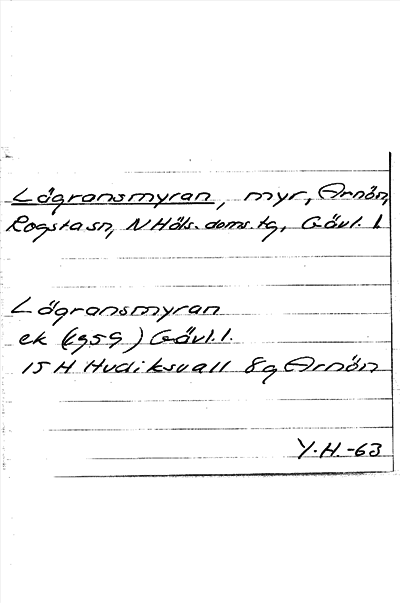 Lögransmyran, myr, Arnön,
Rogsta sn, N Häls. doms. tg, Gävl. l
Lögransmyran
ek (1959) Gävl. l.
15 H Hudiksvall 8g Arnön
Y.H.-63